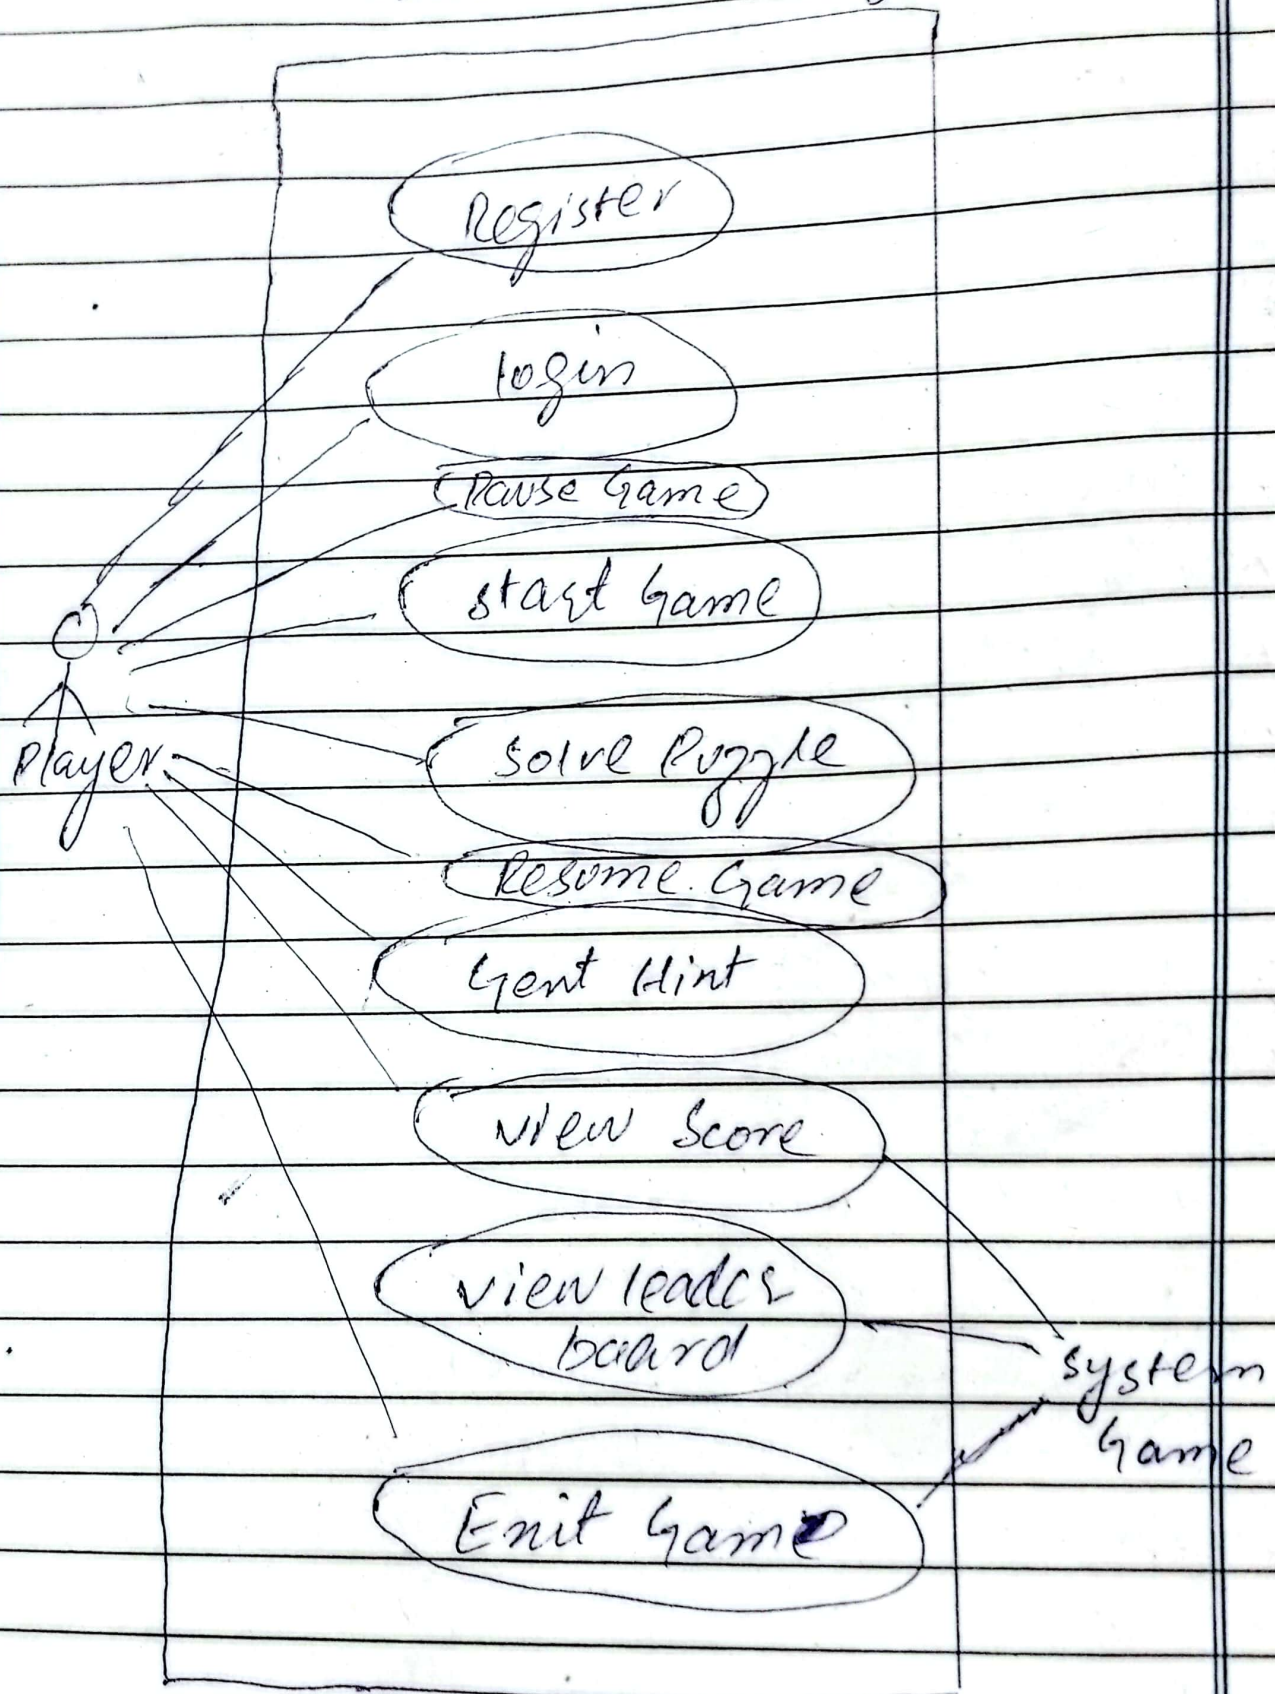 Register
login
Pause Game
start Game
solve Puzzle
Player
Resume Game
Gent Hint
view Score
view leader
baard
system
Game
Enit Game